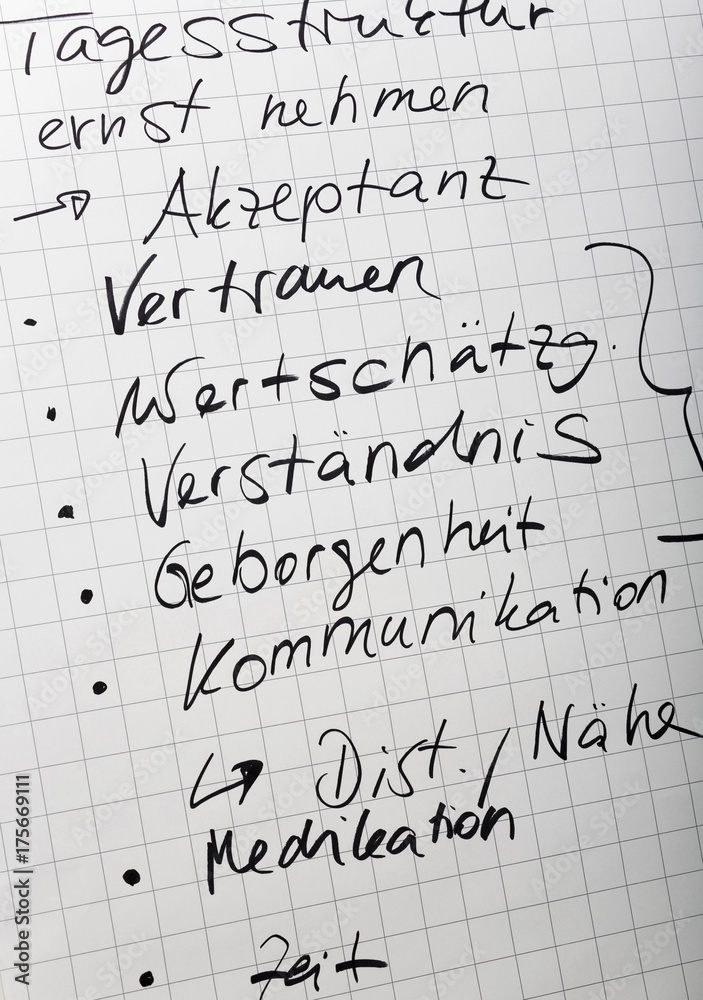 Tagesstruktur
ernst nehmen
→ Akzeptanz
· Vertrauen
· Wertschätzg.
· Verständnis
· Geborgenheit
· Kommunikation
↳ Dist. / Nähe
· Medikation
· Zeit
Adobe Stock | #175669111